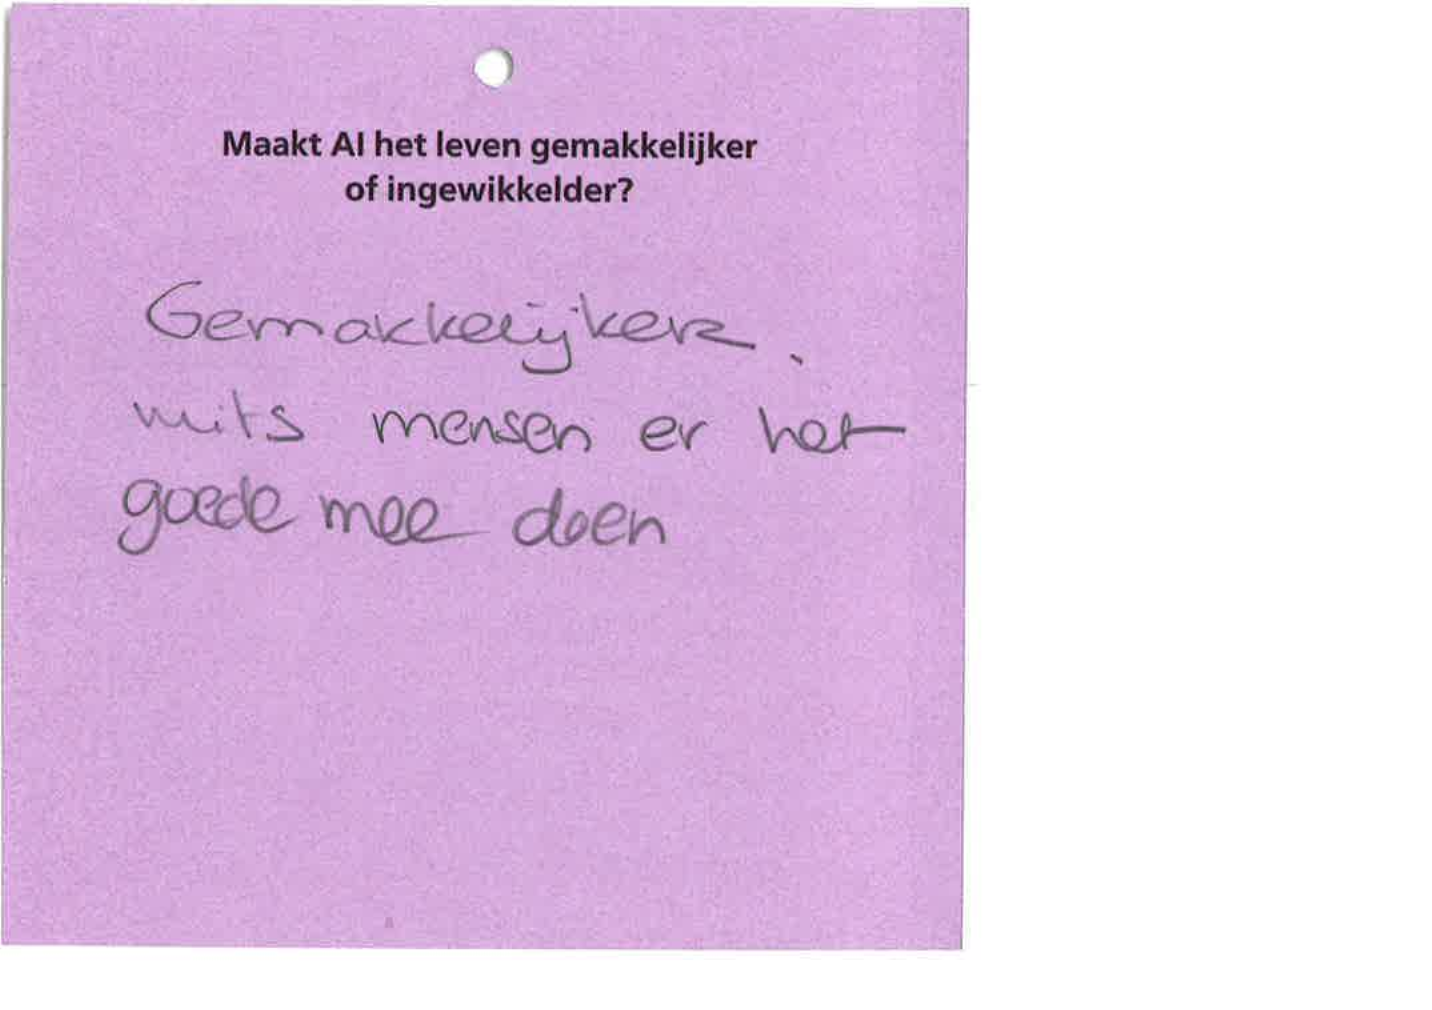 Maakt AI het leven gemakkelijker
of ingewikkelder?
Gemakkelijker.
mits mensen er het
goede mee doen